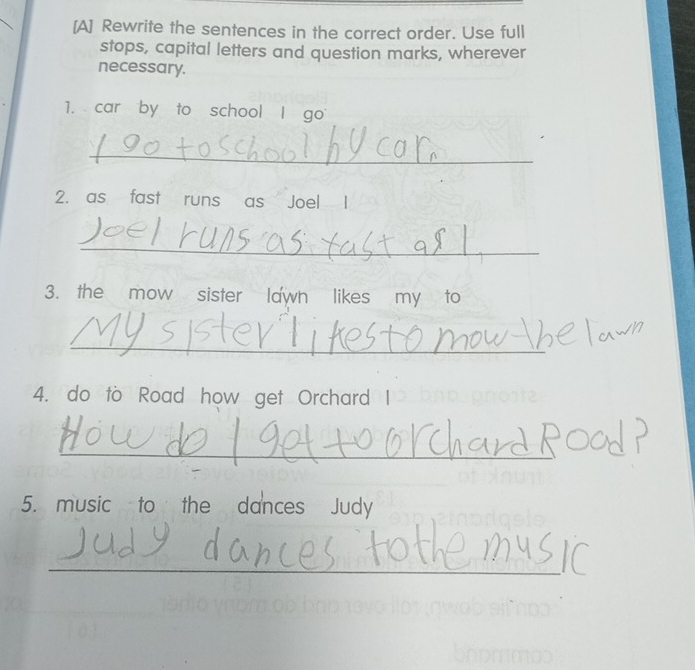 [A] Rewrite the sentences in the correct order. Use full
stops, capital letters and question marks, wherever
necessary.
1. car by to school I go
I go to school by car.
2. as fast runs as Joel I
Joel runs as fast as I.
3. the mow sister lawn likes my to
My sister likes to mow the lawn
4. do to Road how get Orchard I
How do I get to orchard Road?
5. music to the dances Judy
Judy dances to the music